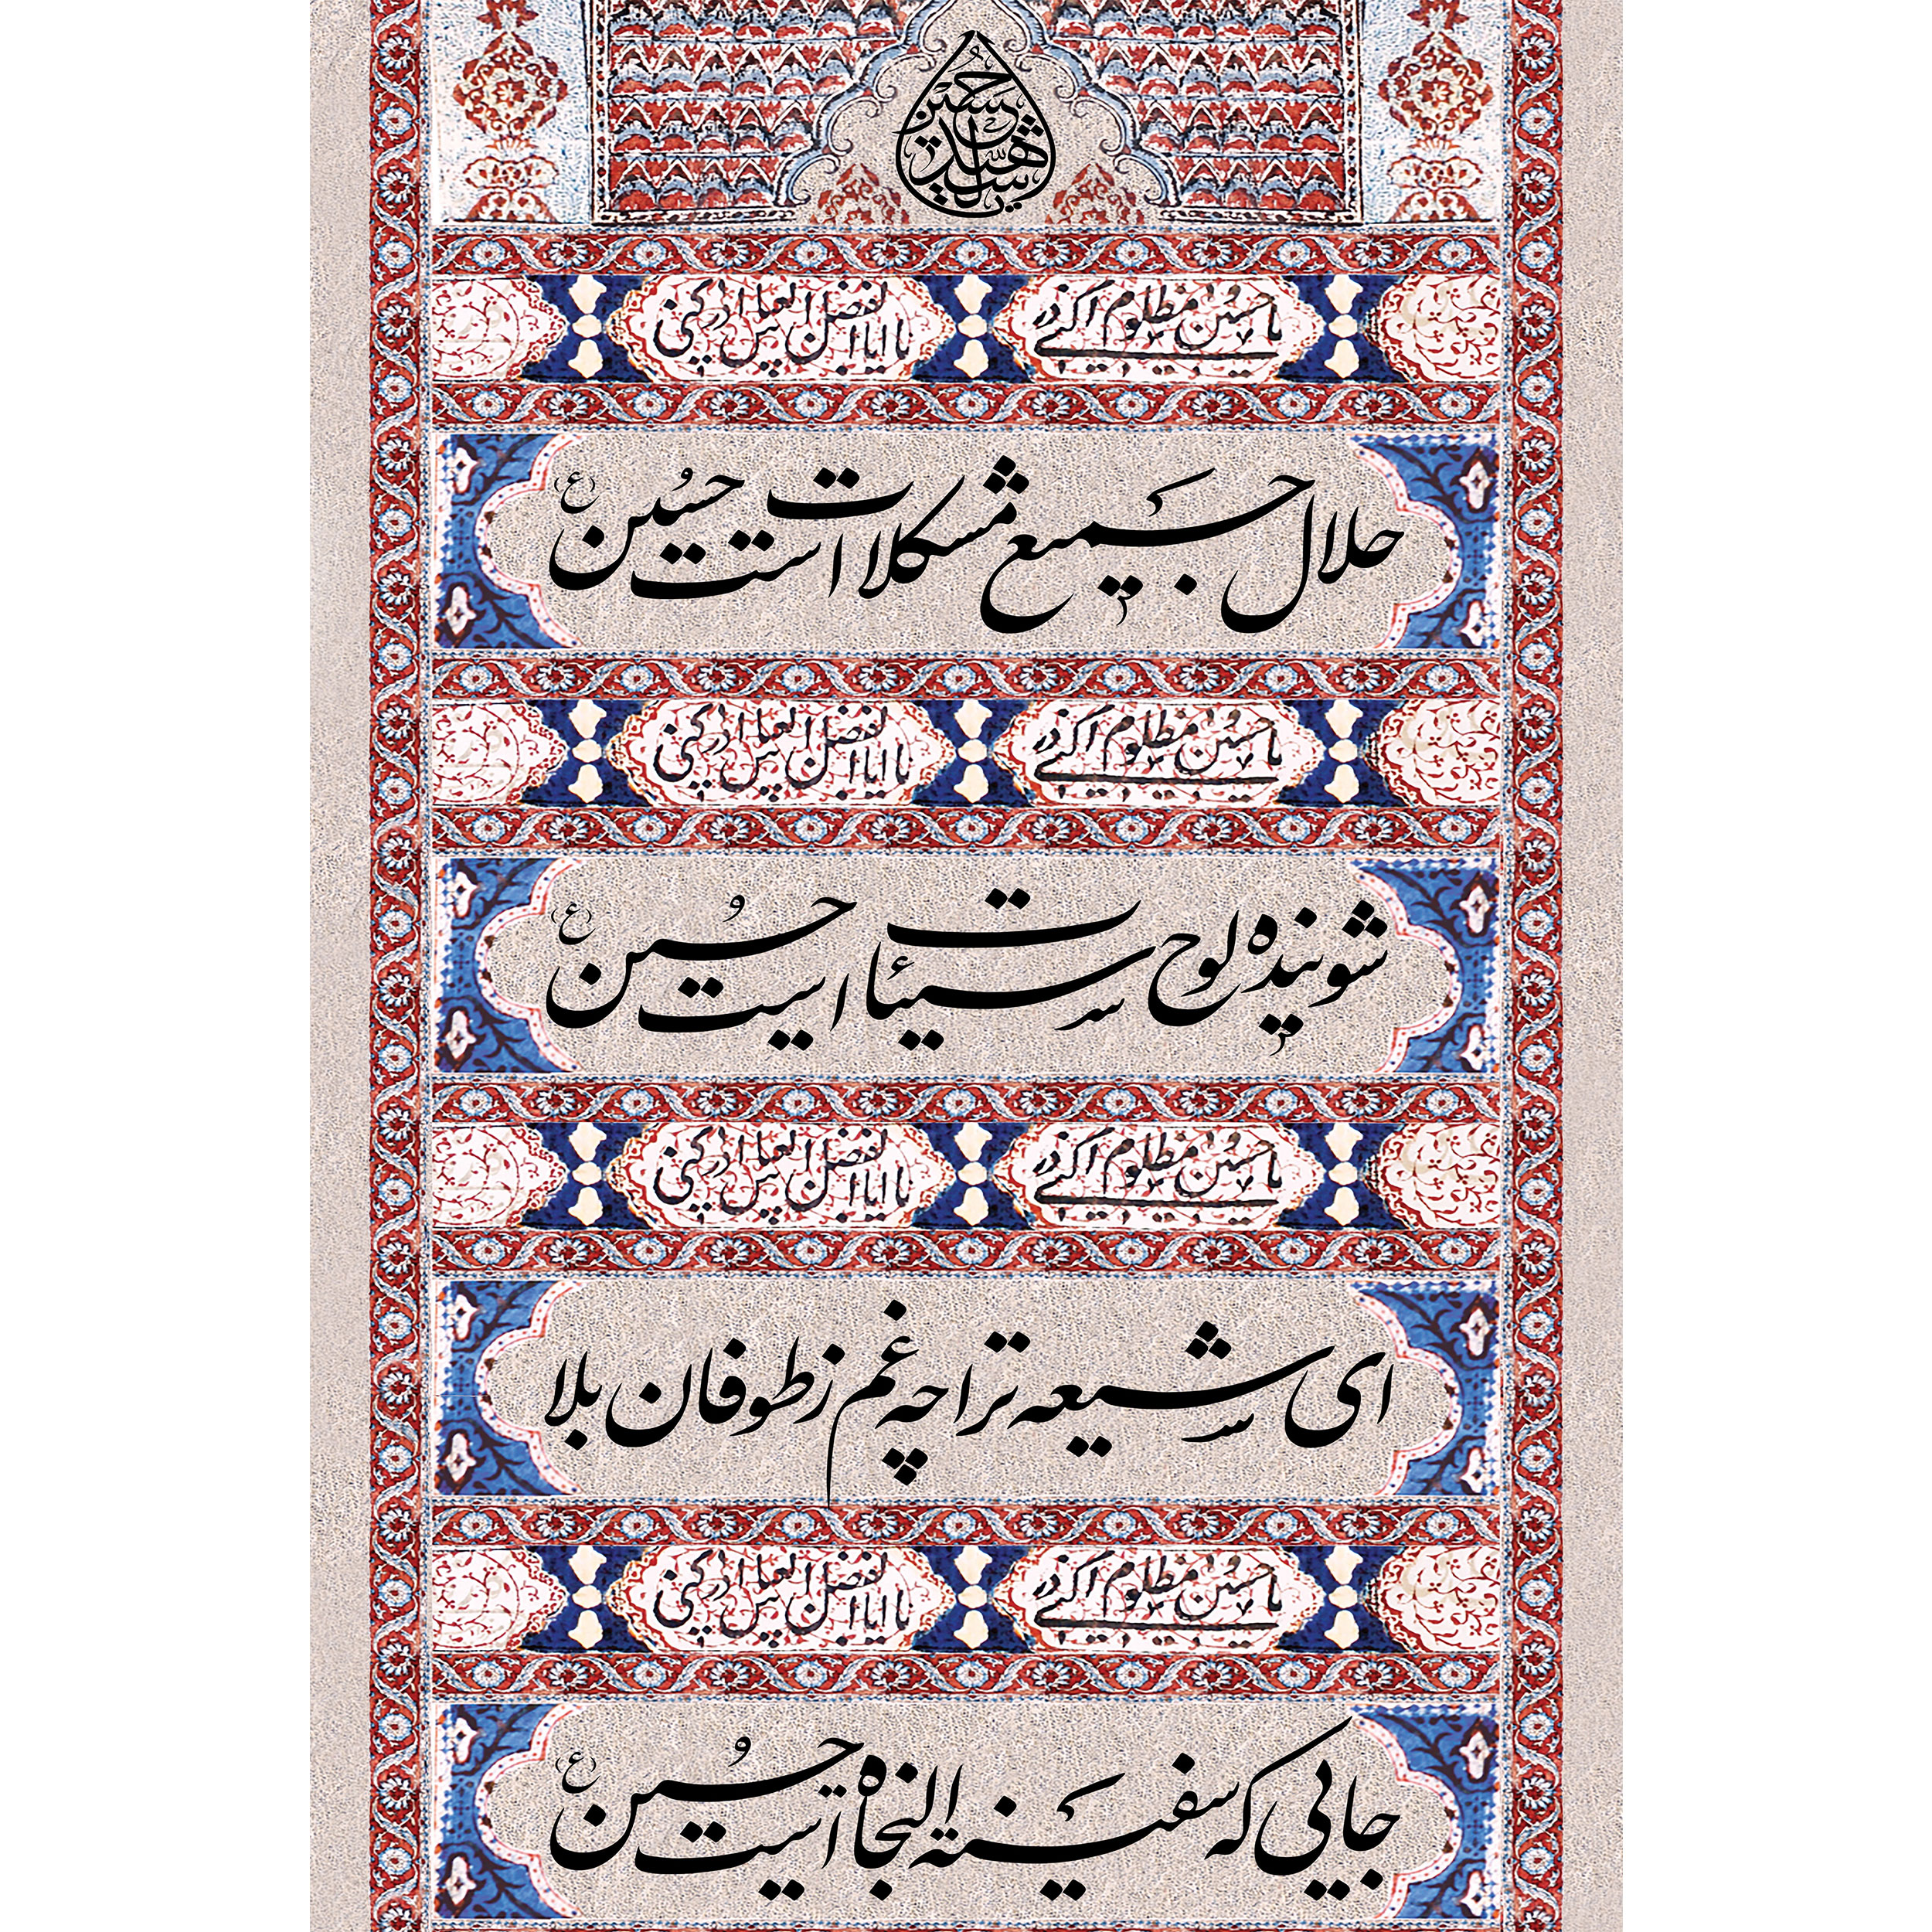 یا حسین شهید
یا حسین مظلوم یا ابالفضل العباس ادرکنی
حلال جمیع مشکلات است حسین (ع)
یا حسین مظلوم یا ابالفضل العباس ادرکنی
شوینده لوح سیئات است حسین (ع)
یا حسین مظلوم یا ابالفضل العباس ادرکنی
ای شیعه ترا چه غم ز طوفان بلا
یا حسین مظلوم یا ابالفضل العباس ادرکنی
جایی که سفینة النجاه است حسین (ع)